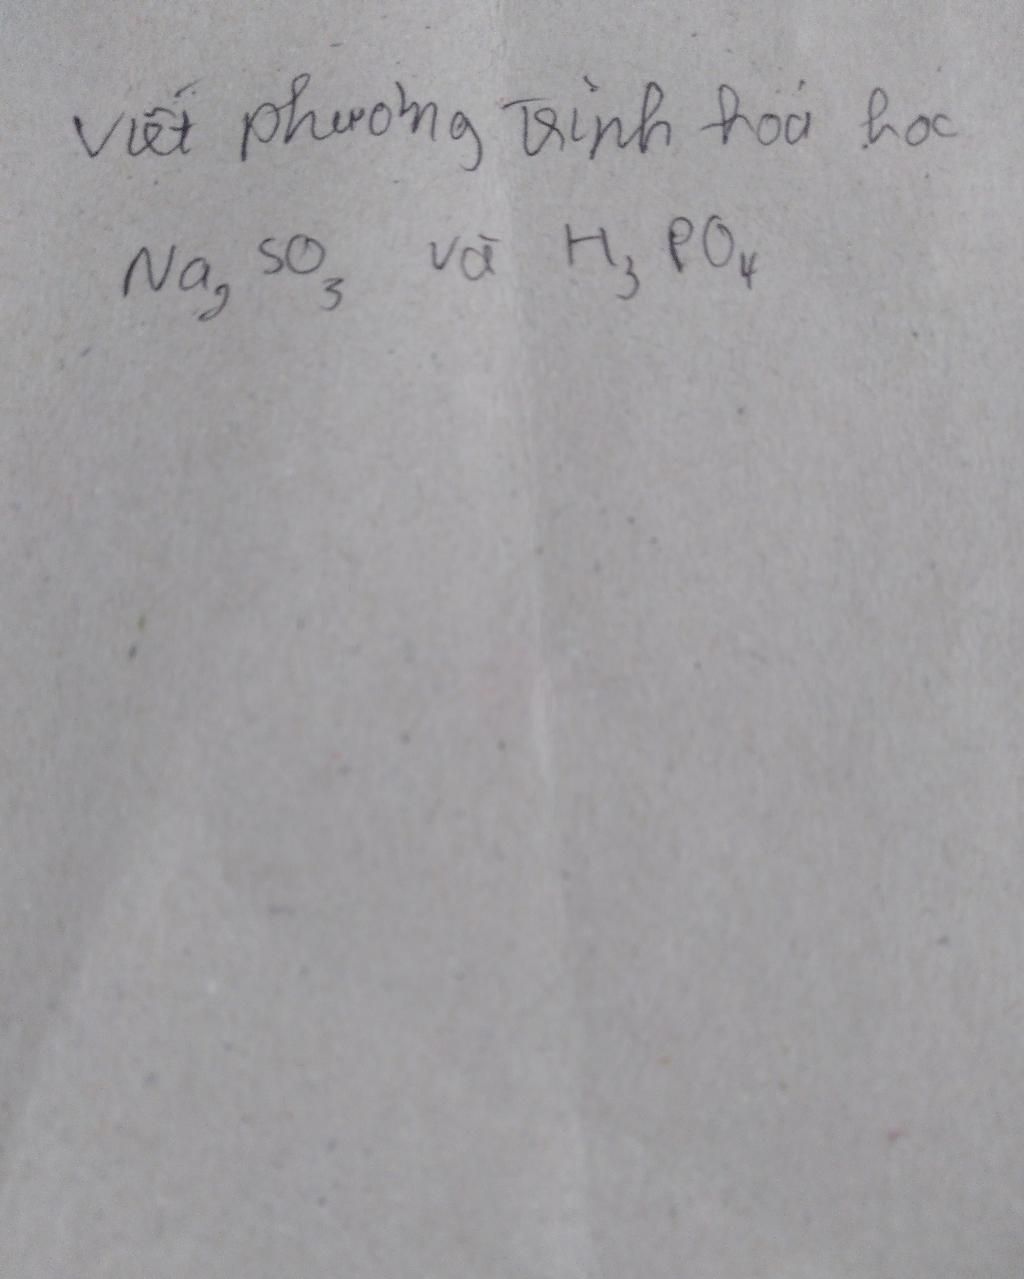 Viết phương trình hoá học
Na₂SO₃ và H₃PO₄